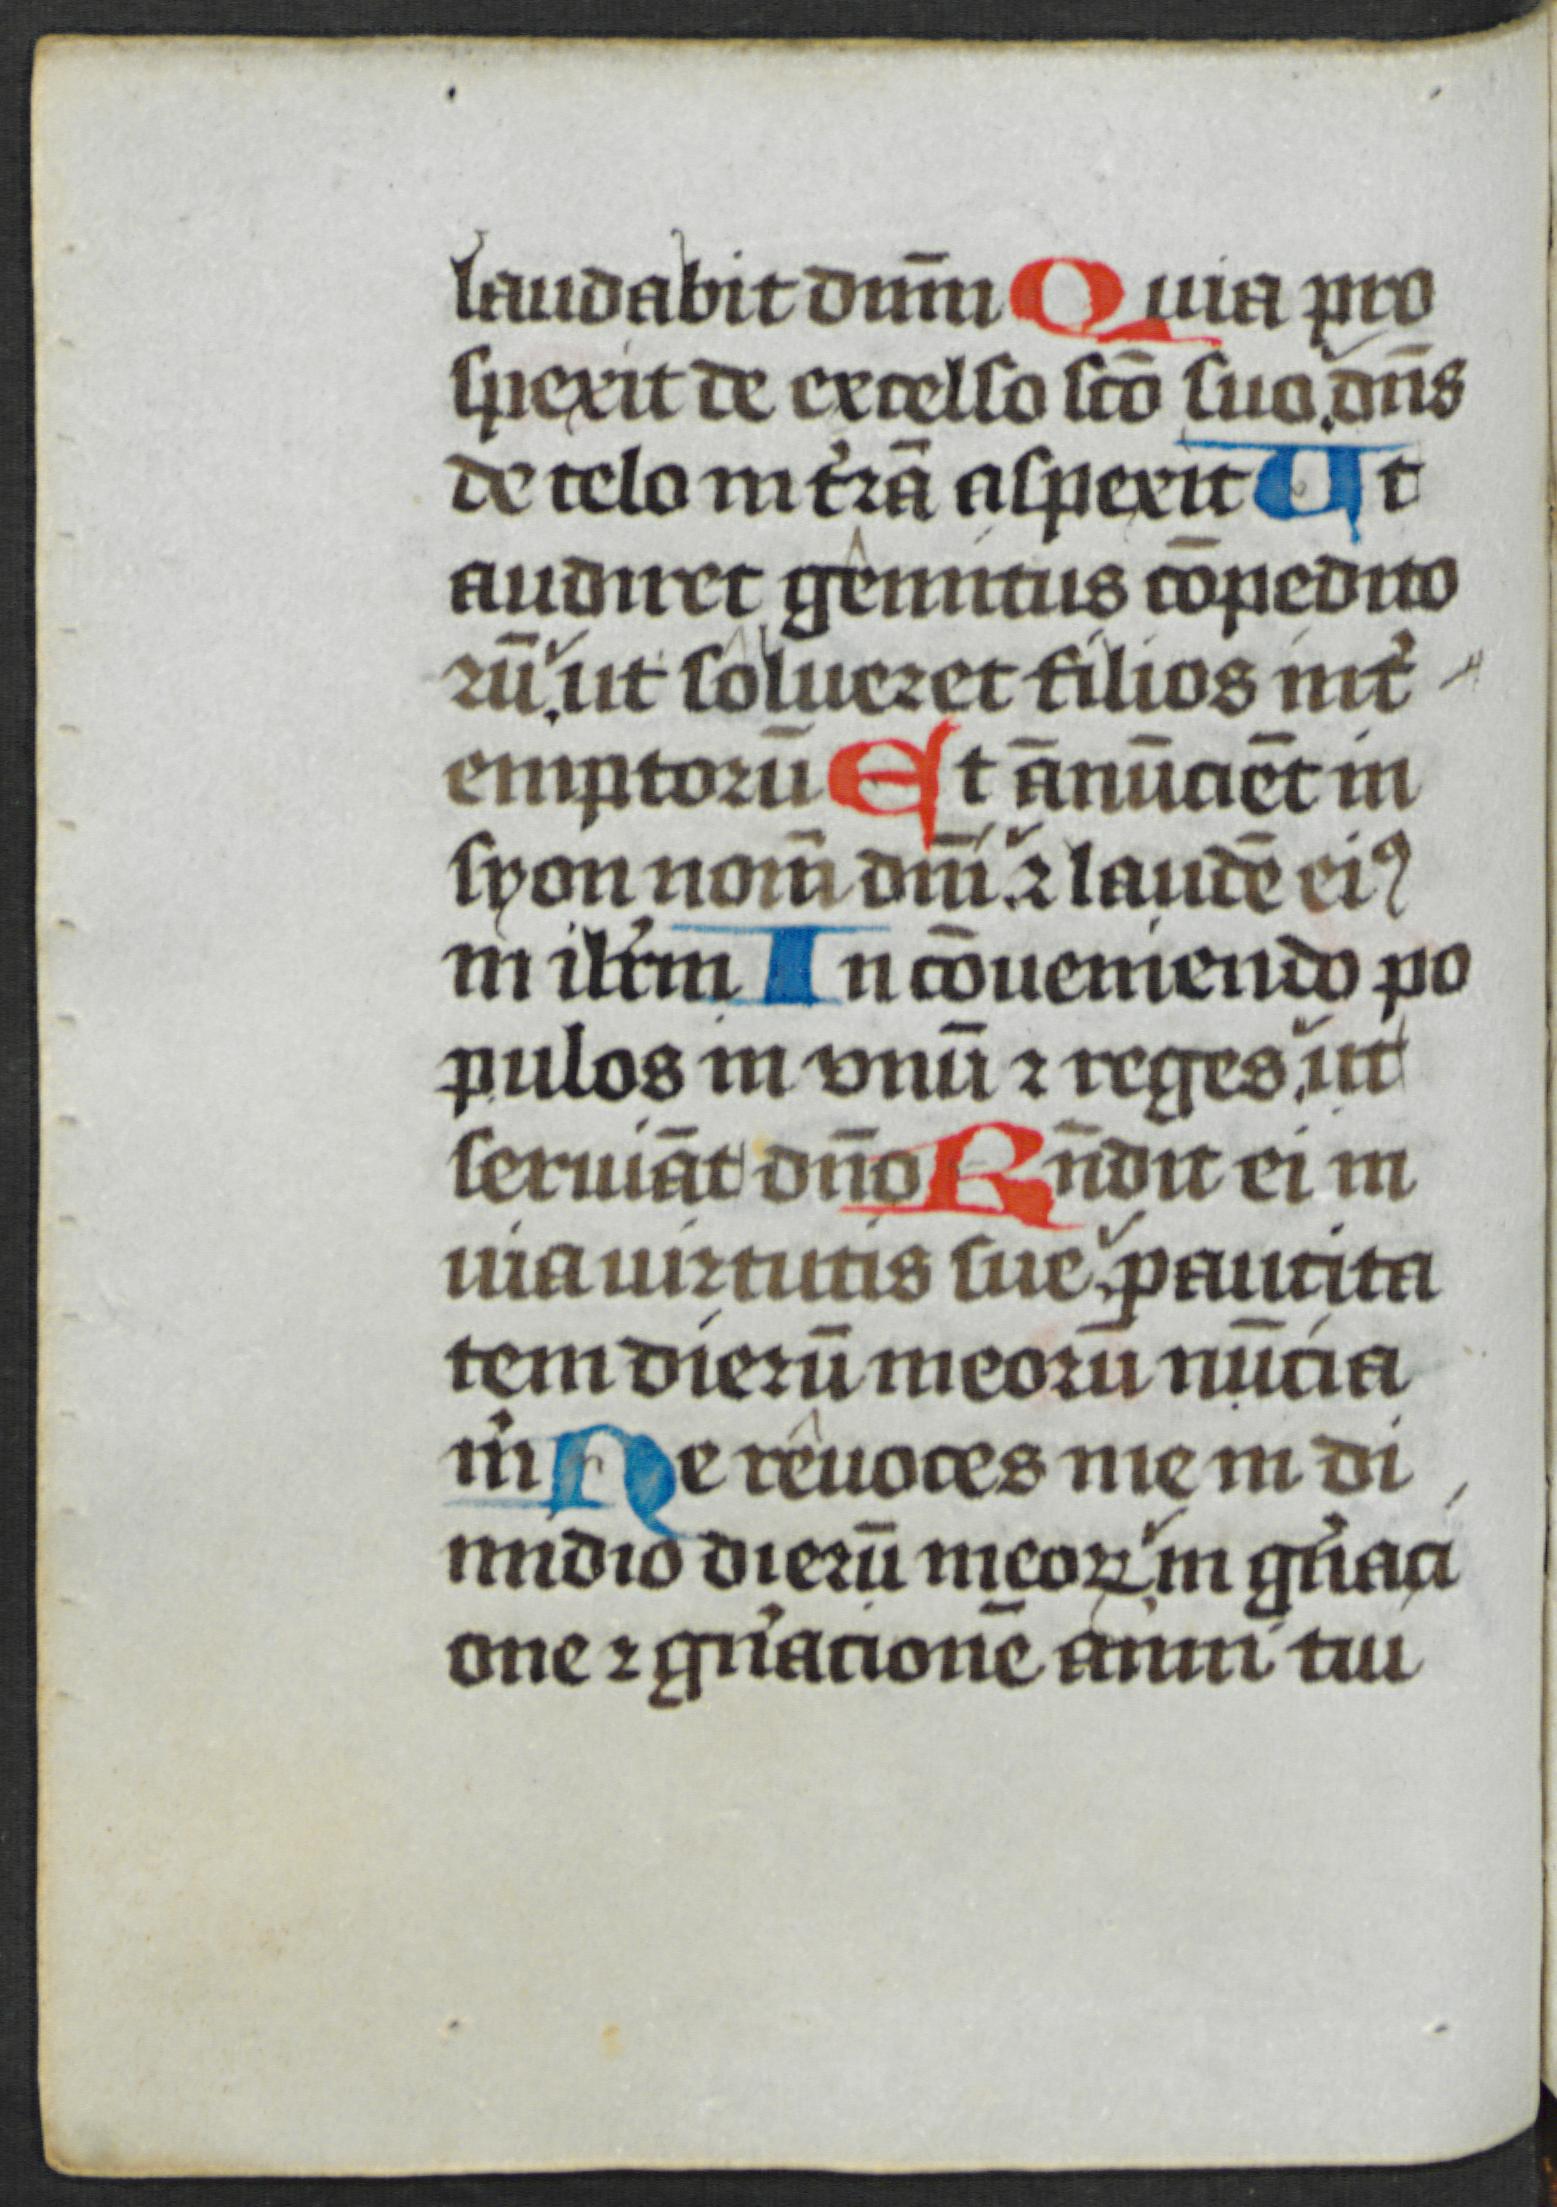 laudabit dnm̄ Quia pro
spexit de excelso scō suo. dn̄s
de celo in t̾rā aspexit Ut
audiret gemitus cōpedito
rū. ut solueret filios int̾
emptorū Et ānūciēt in
syon nom̄ dn̄i. ⁊ laudē eiꝰ
in ilr̾m In cōueniendo po
pulos in vnū ⁊ reges. ut
seruiāt dn̄o Rn̄dit ei in
uia uirtutis sue. paucita
tem dierū meorū nūcia
m̾ Ne reuoces me in di
midio dierū meoꝝ. in gn̾aci
one ⁊ gn̾acionē anni tui